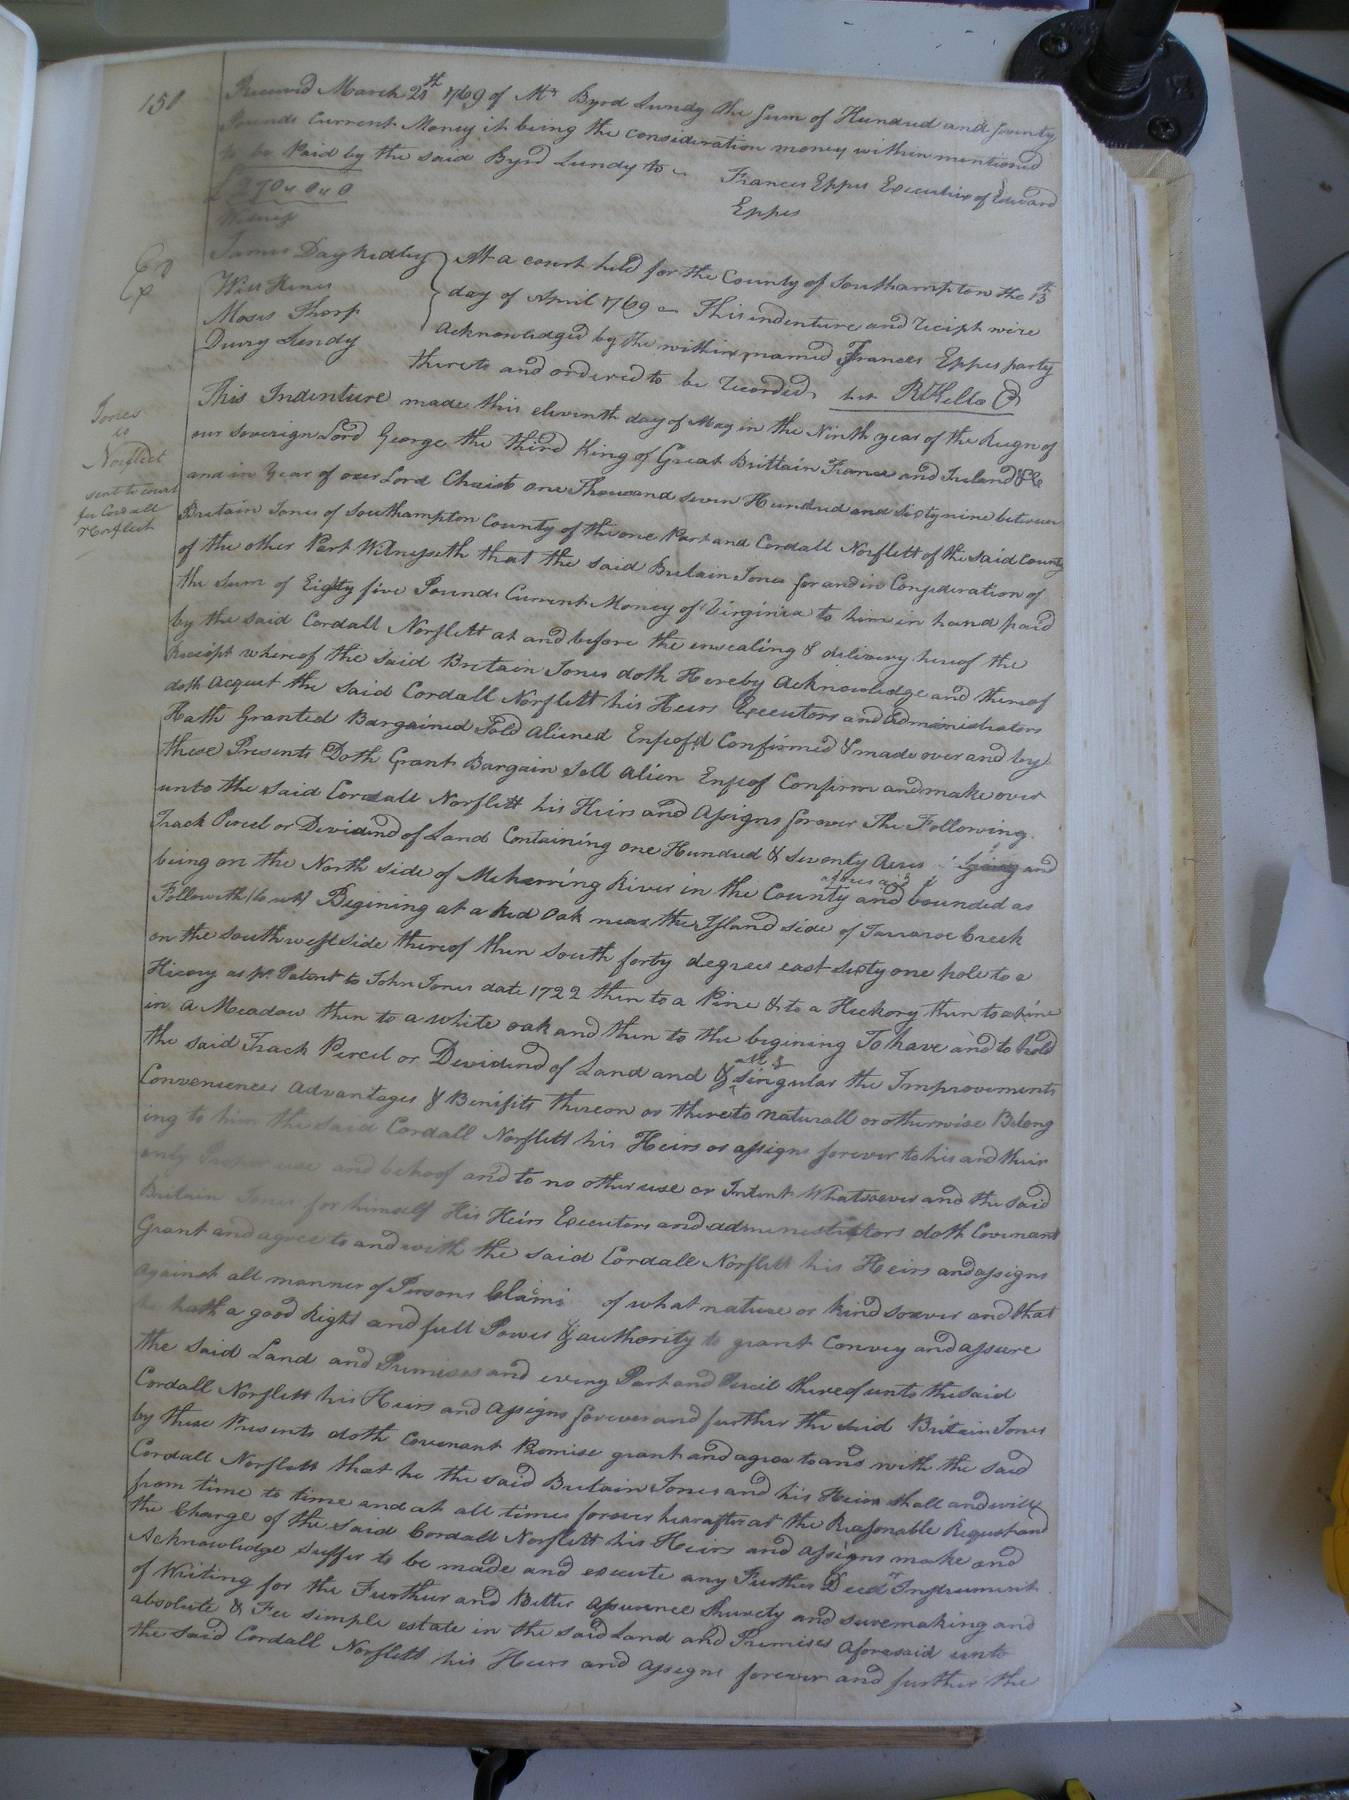 158
Received March 21th 1769 of Mr Byrd Lundy the sum of Hundred and seventy
Pounds Current Money it being the consideration money within mentioned
to be Paid by the said Byrd Lundy to
Frances Eppes Executrix of Edward
Eppes
£270 " 0 " 0
Witness
James Day Ridley
Will Hines
Moses Thorp
Drury Lundy
At a court held for the County of Southampton the 13th
day of April 1769 This indenture and recipt were
Acknowledged by the within named Frances Eppes party
thereto and ordered to be recorded
Jones
to
Norflect
sent to court
for Cordall
Norflect
This Indenture made this eleventh day of May in the Ninth year of the Reign of
our soverign Lord George the third King of Great Brittain France and Ireland &c
and in Year of our Lord Christ one Thousand seven Hundred and sixty nine between
Britain Jones of Southampton County of the one Part and Cordall Norflett of the said County
of the other Part Witnesseth that the said Britain Jones for and in Consideration of
the Sum of Eighty five Pounds Current Money of Virginia to him in hand paid
by the said Cordall Norflett at and before the ensealing & delivery hereof the
Receipt whereof the said Bretain Jones doth Hereby Acknowledge and thereof
doth Acquet the said Cordall Norflett his Heirs Executors and administrators
Hath Granted Bargained Sold Aliened Enfeofd Confirmed & made over and by
these Presents Doth Grant Bargain Sell Alien Enfeof Confirm and make over
unto the said Cordall Norflett his Heirs and Assigns forever The Following
Track Percel or Dividend of Land Containing one Hundred & seventy Acres lying and
being on the North side of Meherring River in the County aforesaid and bounded as
Followeth (to wit) Begining at a Red Oak near the Island side of Tarraroe Creek
on the south west side thereof then south forty degrees east sixty one pole to a
Hicory as pr Patent to John Jones date 1722 then to a Pine & to a Heckory then to a pine
in a Meadow then to a white oak and then to the begining To have and to hold
the said Track Percel or Devidend of Land and all & singular the Improvements
Conveniences Advantages & Benifits thereon or thereto naturall or otherwise Belong
ing to him the said Cordall Norflett his Heirs or assigns forever to his and their
only Proper use and behoof and to no other use or Intent Whatsoever and the said
Britain Jones for himself His Heirs Executors and administrators doth Covenant
Grant and agree to and with the said Cordall Norflett his Heirs and assigns
Against all manner of Persons Claims of what nature or kind soever and that
he hath a good Right and full Power & authority to grant Convey and assure
the said Land and Premises and every Part and Percil thereof unto the said
Cordall Norflett his Heirs and Assigns forever and further the said Britain Jones
by these Presents doth Covenant Promise grant and agree to and with the said
Cordall Norflett that he the said Britain Jones and his Heirs shall and will
from time to time and at all times forever hearafter at the Reasonable Request and
the Charge of the said Cordall Norflett his Heirs and assigns make and
Acknowledge suffer to be made and execute any Further Deed or Instrument
of Writing for the Further and Better assurance Shurety and suremaking and
absolute & Fee simple estate in the said Land and Premises aforesaid unto
the said Cordall Norflett his Heirs and assigns forever and further the